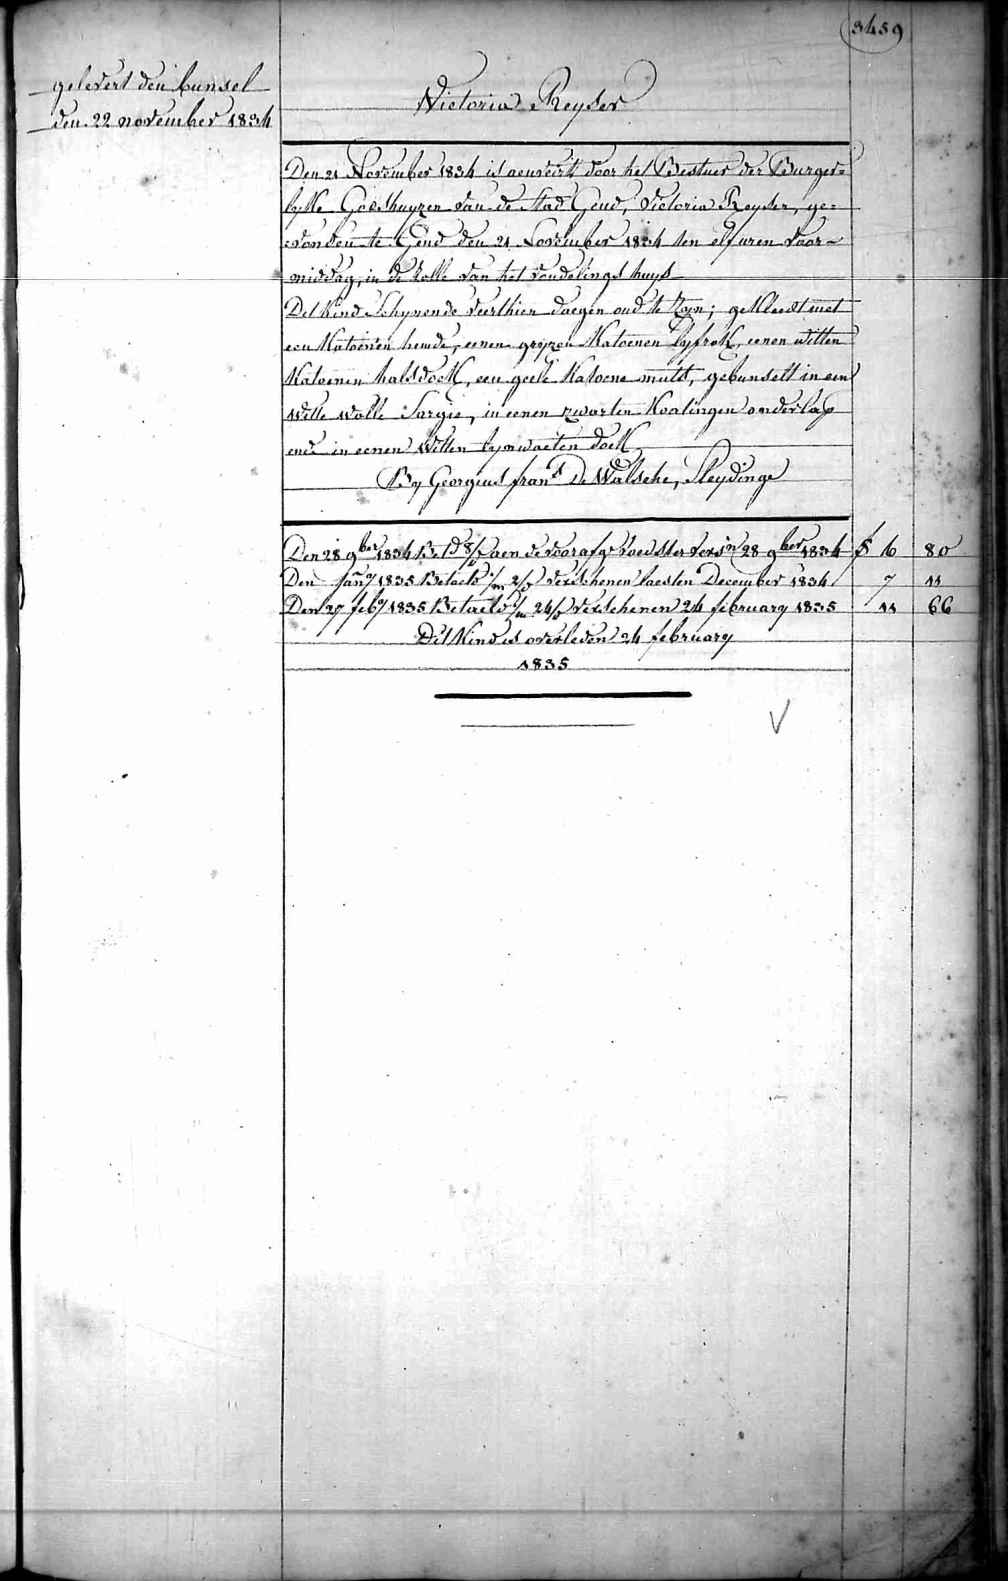 3459
gelevert den bunsel
den 22 november 1834
Victoria Reyser
Den 21 November 1834 is aenveirt door het Bestuer der Burger=
lyke Godshuyzen van de Stad Gend, Victoria Reyser, ge=
vonden te Gend den 21 November 1834 ten elf uren voor-
middag, in de rolle van het vondelings huys
Dit Kind Schynende veerthien daegen oud te Zyn; gekleedt met
een Katoenen hemde, eenen gryzen Katoenen lyfrok, eenen witten
Katoenen halsdoek, een geele Katoene muts, gebunselt in een
witte wolle Sargie, in eenen zwarten Koatingen onderlap
ende in eenen witten lynwaeten doek
By Georgius frans De Walsche, Sleydinge
Den 28 9ber 1834 Be aen de voorafge voedster 28 9ber 1834 f 16 80
Den Jany 1835 Betaelt verschenen laesten December 1834 7 11
Den 27 feby 1835 Betaelt verschenen 24 february 1835 11 66
Dit Kind is overleden 24 february
1835